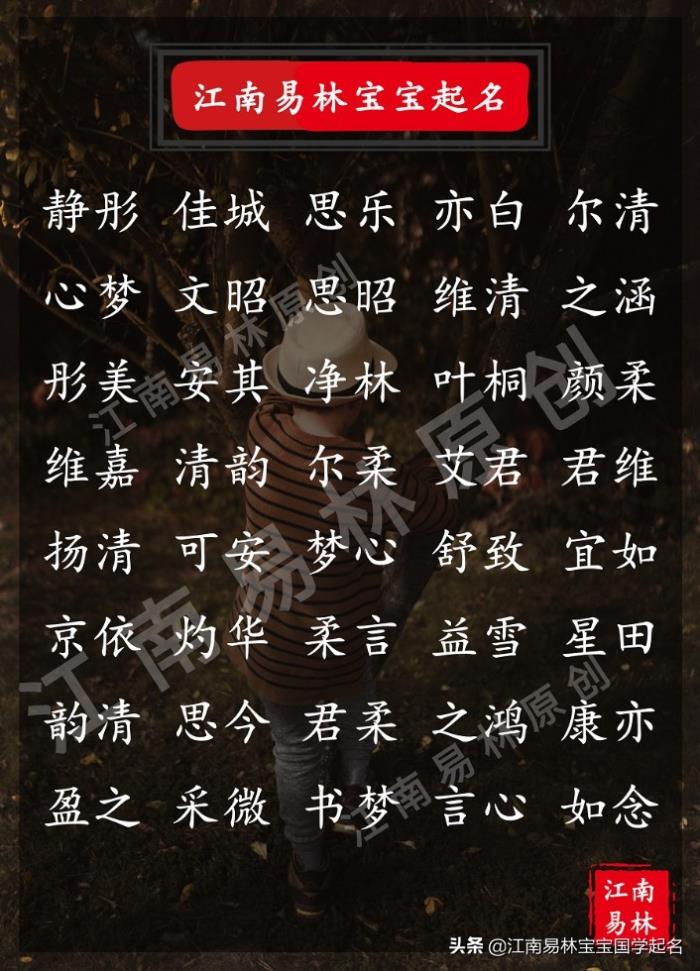 江南易林宝宝起名
静彤 佳城 思乐 亦白 尔清
心梦 文昭 思昭 维清 之涵
彤美 安其 净林 叶桐 颜柔
维嘉 清韵 尔柔 艾君 君维
扬清 可安 梦心 舒致 宜如
京依 灼华 柔言 益雪 星田
韵清 思今 君柔 之鸿 康亦
盈之 采微 书梦 言心 如念
江南易林原创
江南易林原创
江南易林原创
江南
易林
头条 @江南易林宝宝国学起名